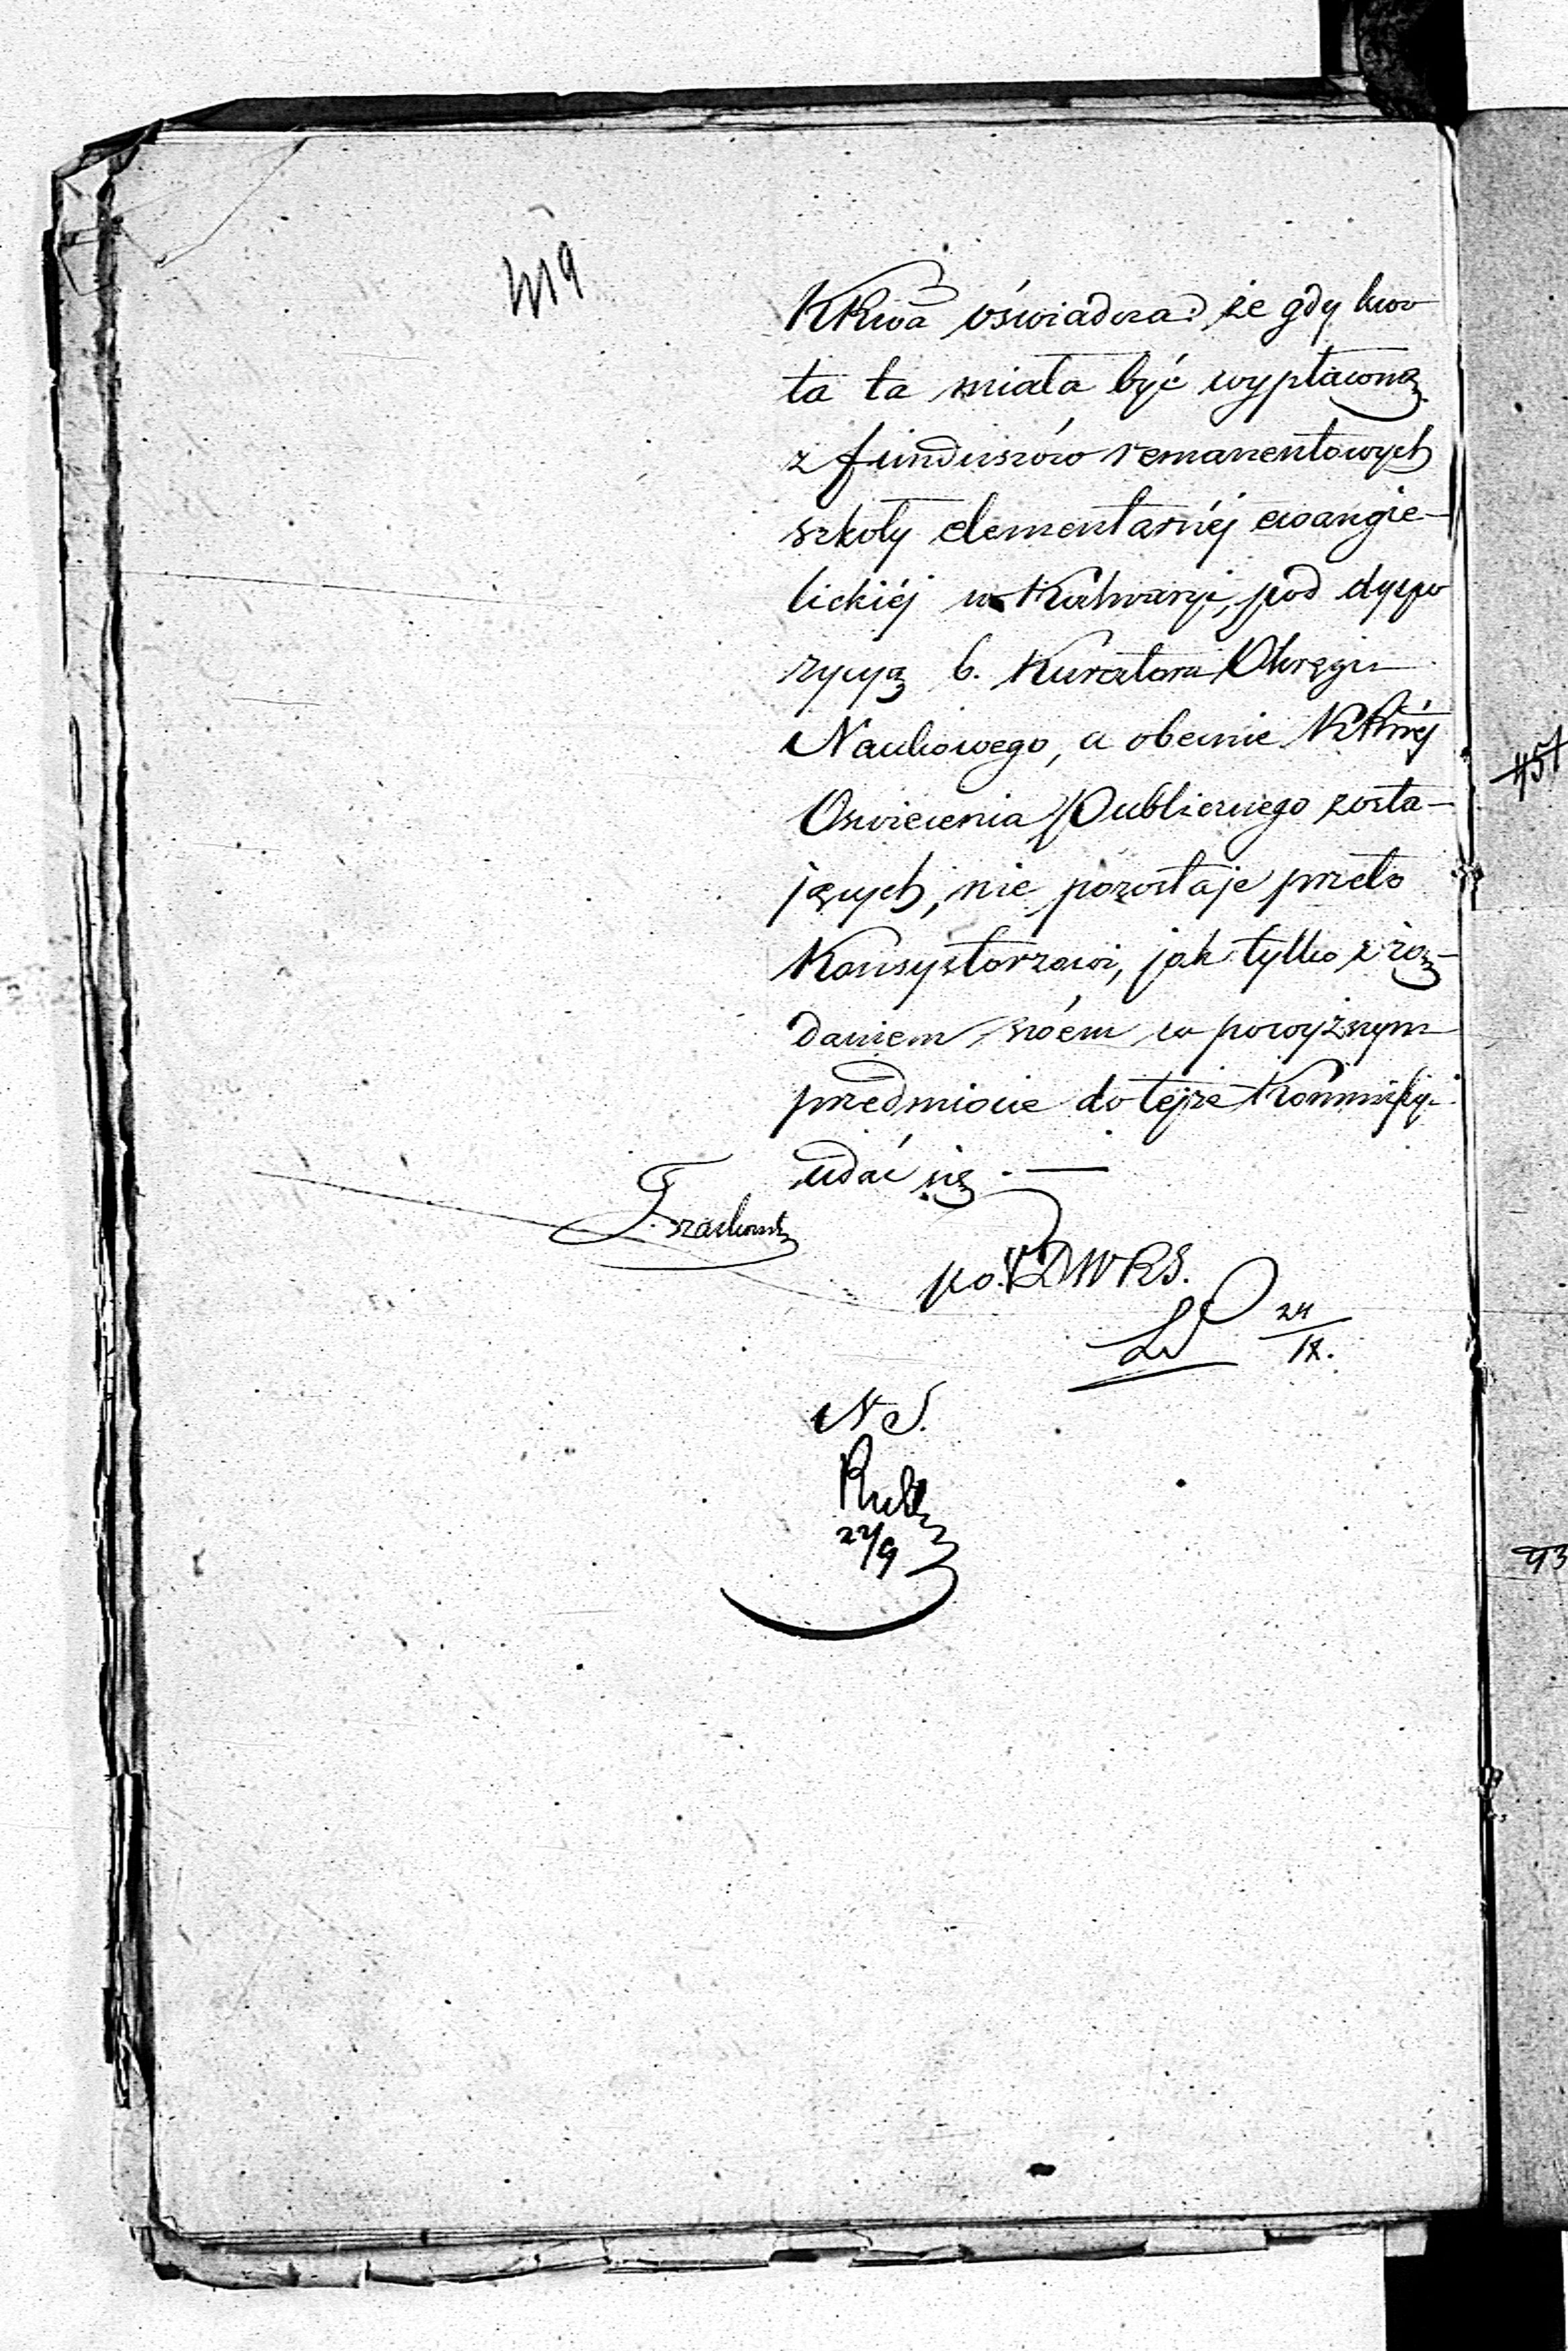 419
KRwa oświadcza, że gdy kwo
ta ta miała być wypłaconą
z funduszów remanentowych
szkoły elementarnéj ewangie-
lickiéj w Kalwaryi, pod dyspo
zycyą b. Kuratora Okręgu
Naukowego, a obecnie KRwéj
Oswiecenia Publicznego zosta-
jących, nie pozostaje przeto
Konsystorzowi, jak tylko z żą-
daniem swém w powyższym
przedmiocie do tejże Kommissyi
udać się. —
po. DWRS.
24
IX.
NS.
22/9